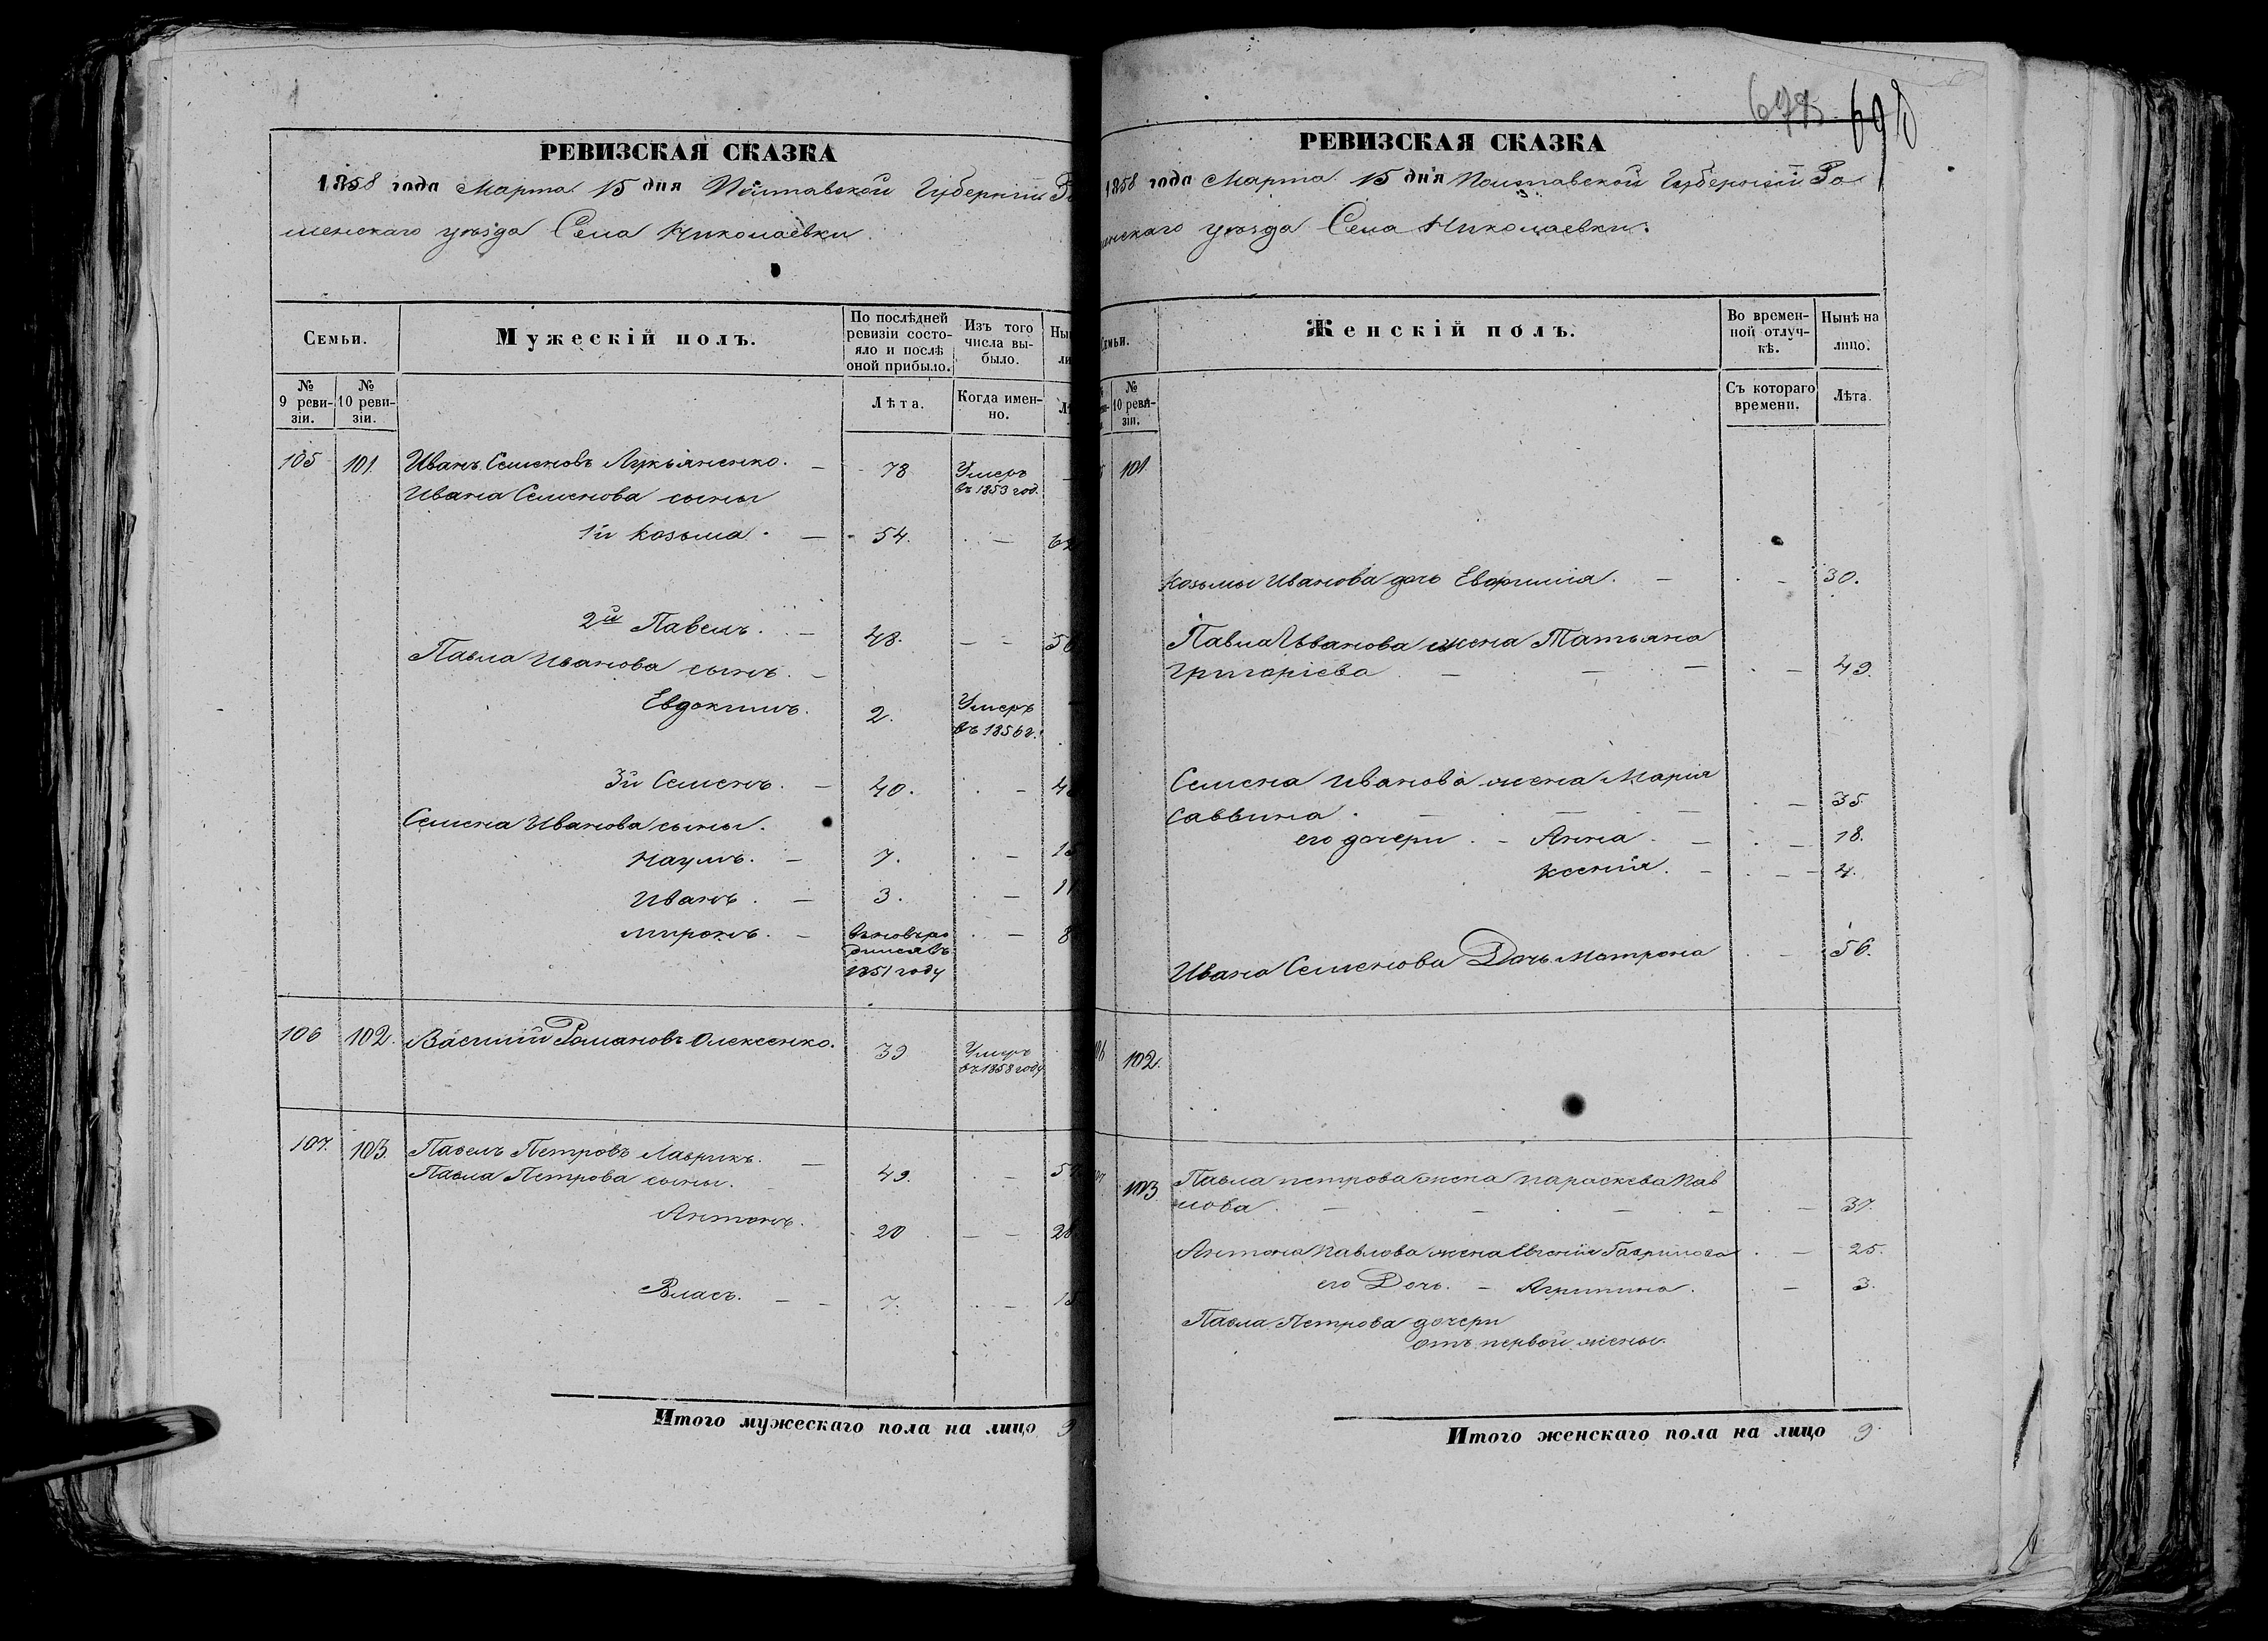 РЕВИЗСКАЯ СКАЗКА
1858 года Марта 15 дня Полтавской Губерніи Ро
менскаго уѣзда Села Николаевки.
Семьи.
Мужескій полъ.
По послѣдней ревизіи состо-
яло и послѣ оной прибыло.
Изъ того числа вы-
было.
№ 9 реви-
зіи.
№ 10 реви-
зіи.
Лѣта.
Когда имен-
но.
105 101 Иванъ Семеновъ Лукьяненко. — 78 Умеръ
въ 1853 год.
Ивана Семенова сыны
1й Козьма. — 54. —
2й Павелъ. — 48. — —
Павла Иванова сынъ. —
Евдокимъ. 2. Умеръ
въ 1856 г.
3й Семенъ. — 40. —
Семена Иванова сыны.
Наумъ. — 7. —
Иванъ. — 3. —
Миронъ. — вьновьро — 8
дился въ
1851 году
106 102. Василий Романовъ Олексенко. 39 Умеръ
въ 1858 году
107. 103. Павелъ Петровъ Лаврикъ. — 49. —
Павла Петрова сыны.
Антонъ. 20 — — 28
Власъ. — — 7. —
Итого мужескаго пола на лицо 9
РЕВИЗСКАЯ СКАЗКА
1858 года Марта 15 дня Полтавской Губерніи Ро
менскаго уѣзда Села Николаевки.
Женскій полъ.
Во времен-
ной отлуч-
кѣ.
Нынѣ на
лицо.
№ 10 реви-
зіи.
Съ котораго
времени.
Лѣта.
101.
Козьмы Иванова дочь Евфимія. — — 30.
Павла Иванова жена Татьяна
Григоріева — — — — 49.
Семена Иванова жена Марія
Саввина. — — — — 35.
его дочери. — Анна. — — 18.
Ксенія. — — — 4.
Ивана Семенова Дочь Матрона — 56.
106 102.
103 Павла Петрова жена Параскева Пав
лова. — — — — — 37.
Антона Павлова жена Евгенія Гаврилова — 25.
его Дочь. — Агрипина. — 3.
Павла Петрова дочери
отъ первой жены.
Итого женскаго пола на лицо 9.